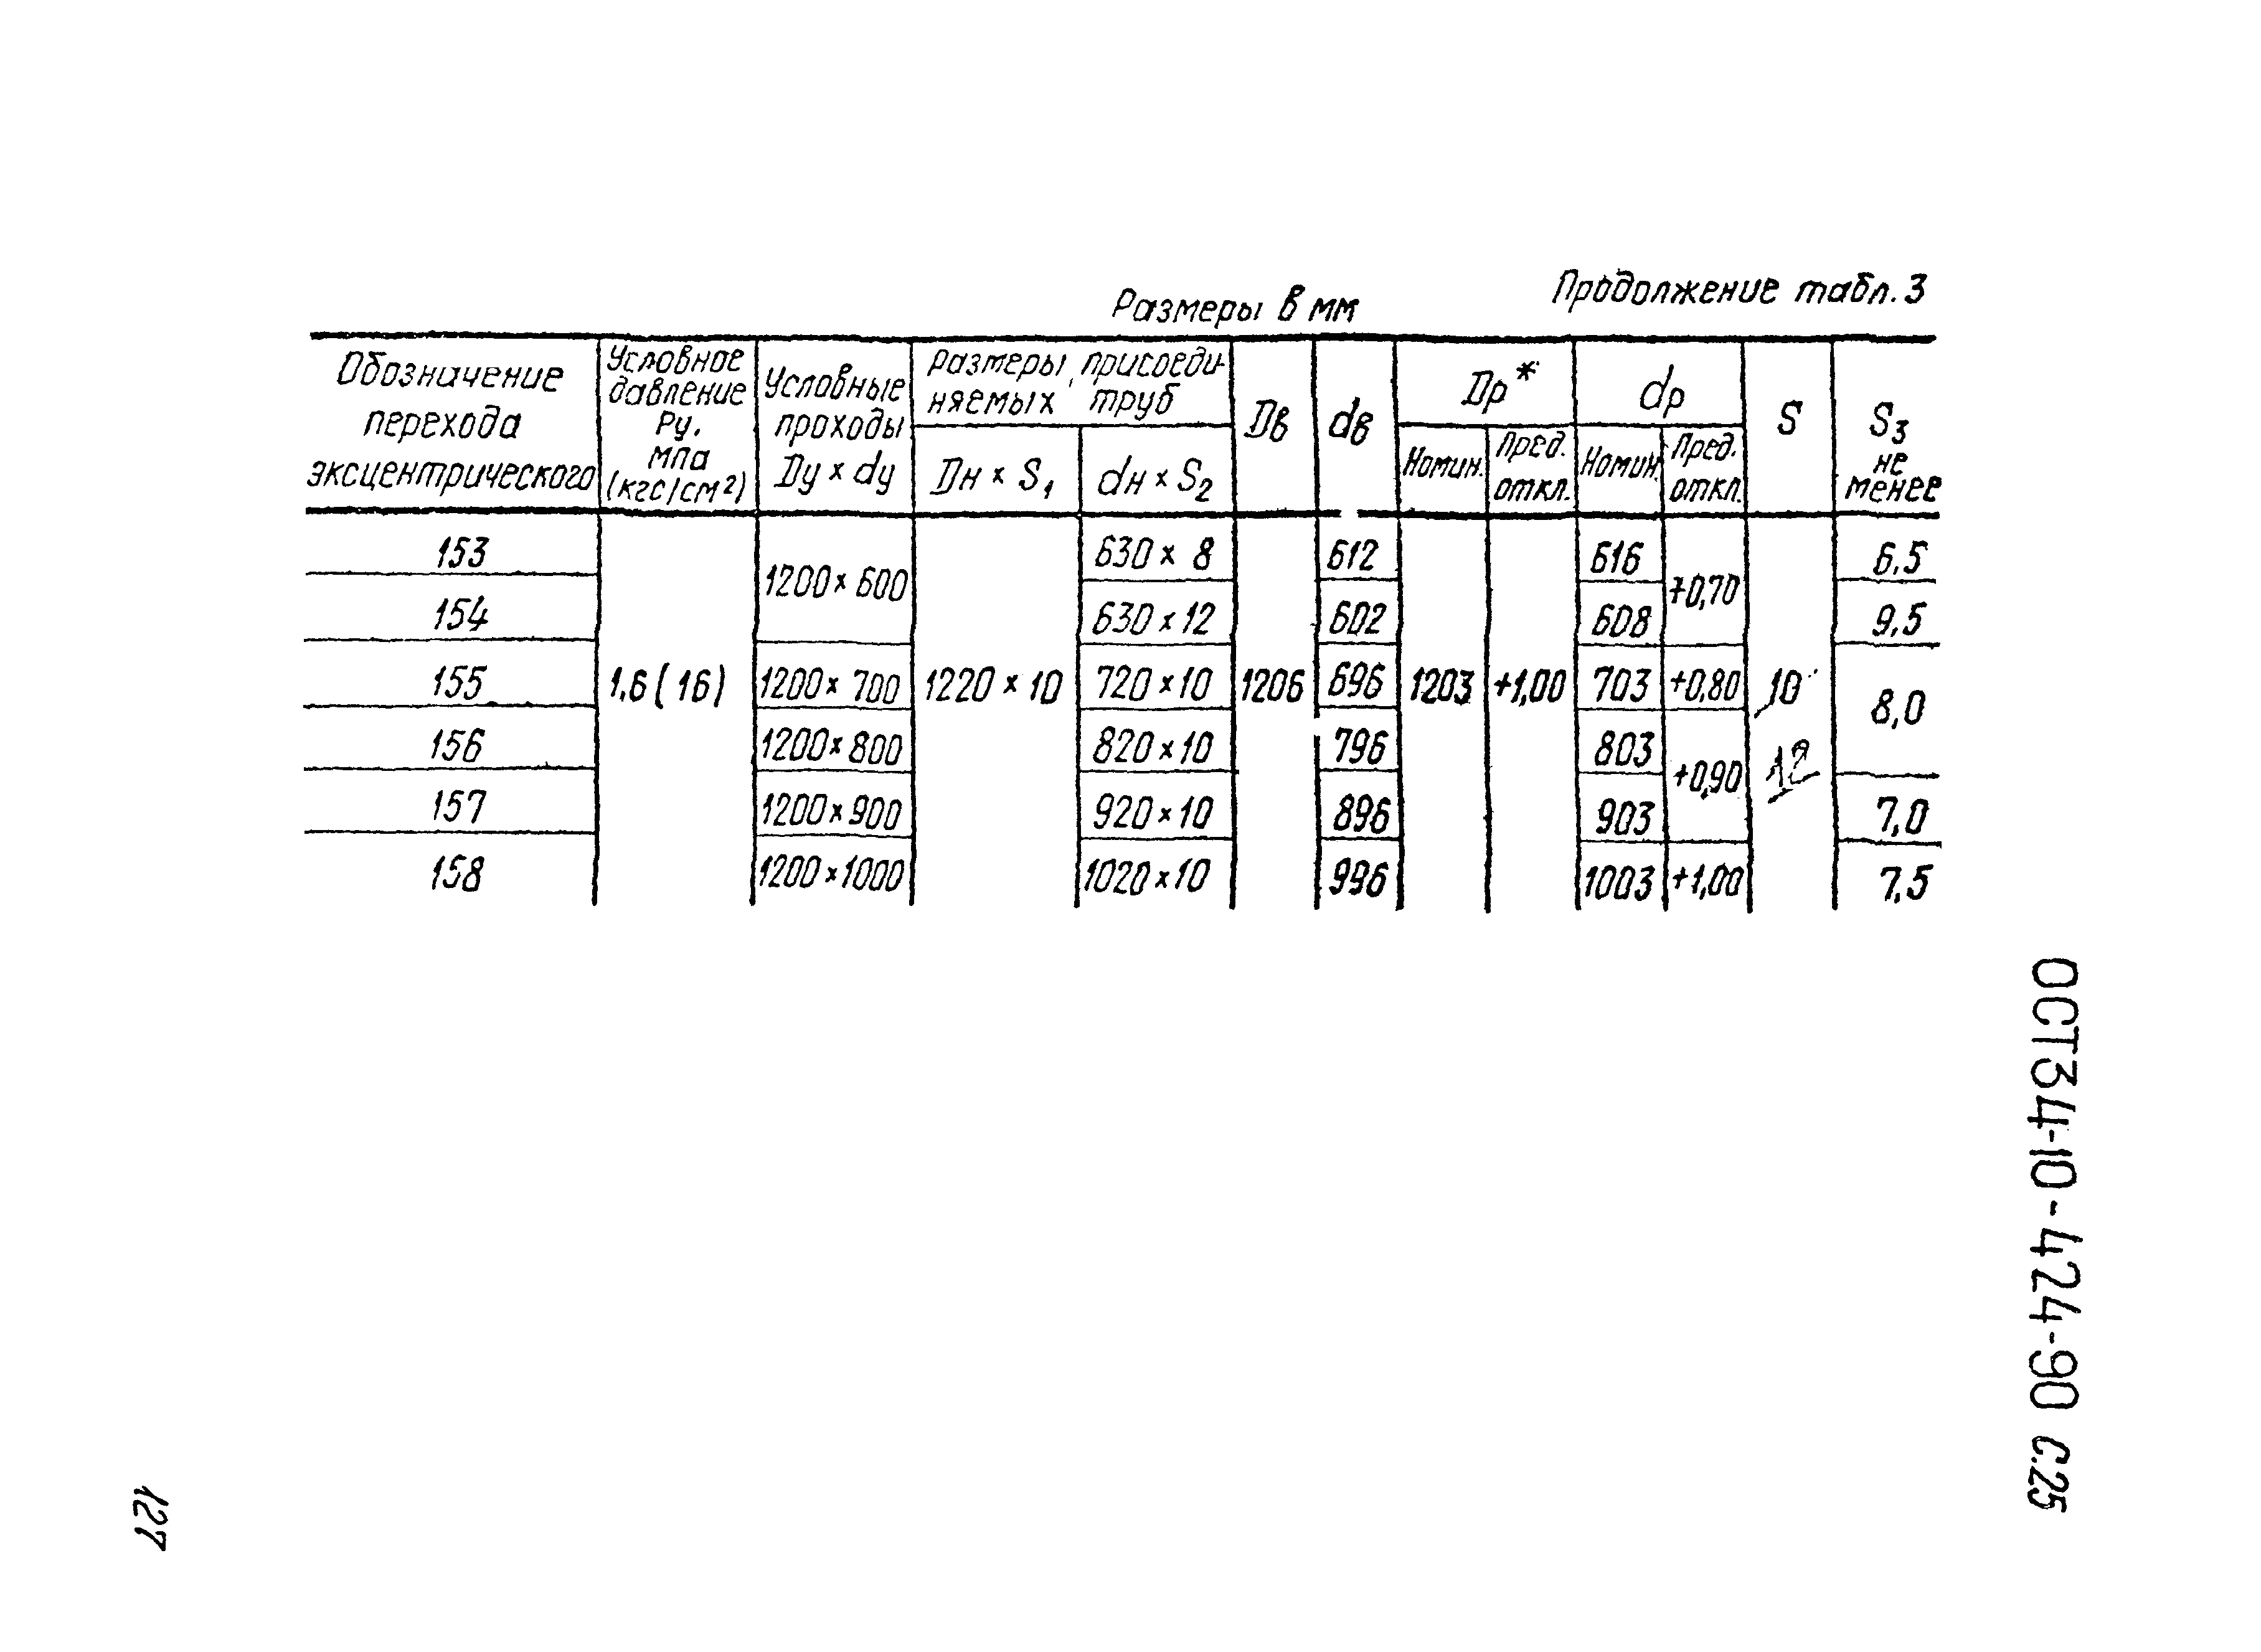 Продолжение табл. 3
Размеры в мм
Обозначение перехода эксцентрического | Условное давление Ру, мпа (кгс/см²) | Условные проходы Dу × dу | Размеры присоединяемых труб Dн × S₁ | dн × S₂ | Dв | dв | Dр* Номин. | Пред. откл. | dр Номин. | Пред. откл. | S | S₃ не менее
153 | 1,6 (16) | 1200 × 600 | 1220 × 10 | 630 × 8 | 612 | 1206 | 1203 | +1,00 | 616 | +0,70 | 10 | 6,5
154 | 630 × 12 | 602 | 608 | 9,5
155 | 1200 × 700 | 720 × 10 | 696 | 703 | +0,80 | 8,0
156 | 1200 × 800 | 820 × 10 | 796 | 803 | +0,90 | 12
157 | 1200 × 900 | 920 × 10 | 896 | 903 | 7,0
158 | 1200 × 1000 | 1020 × 10 | 996 | 1003 | +1,00 | 7,5
ОСТ34-10-424-90 С.25
127